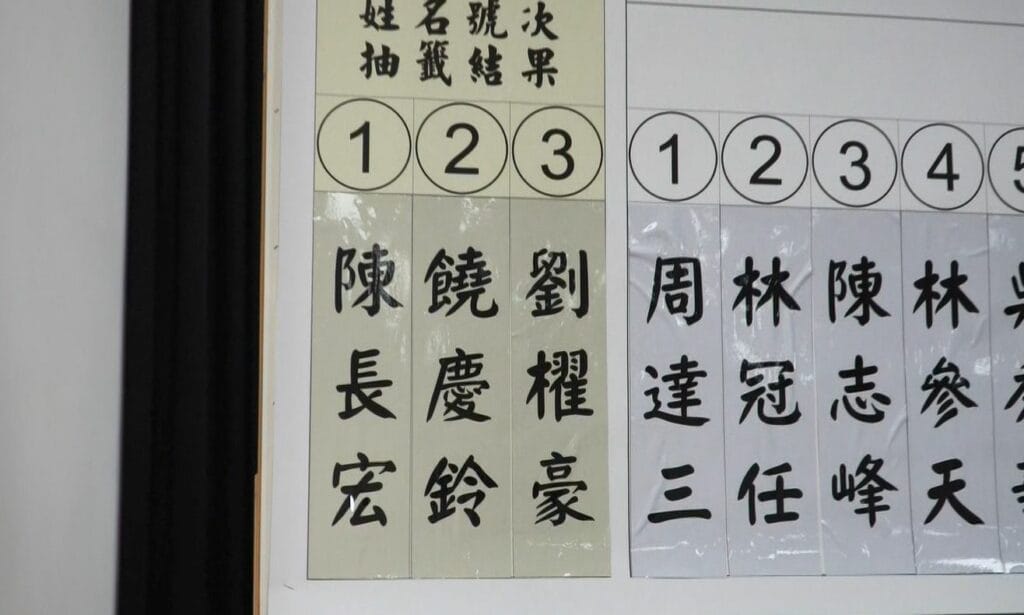 姓名號次
抽籤結果
1 2 3
陳長宏
饒慶鈴
劉櫂豪
1 2 3 4 5
周達三
林冠任
陳志峰
林參天